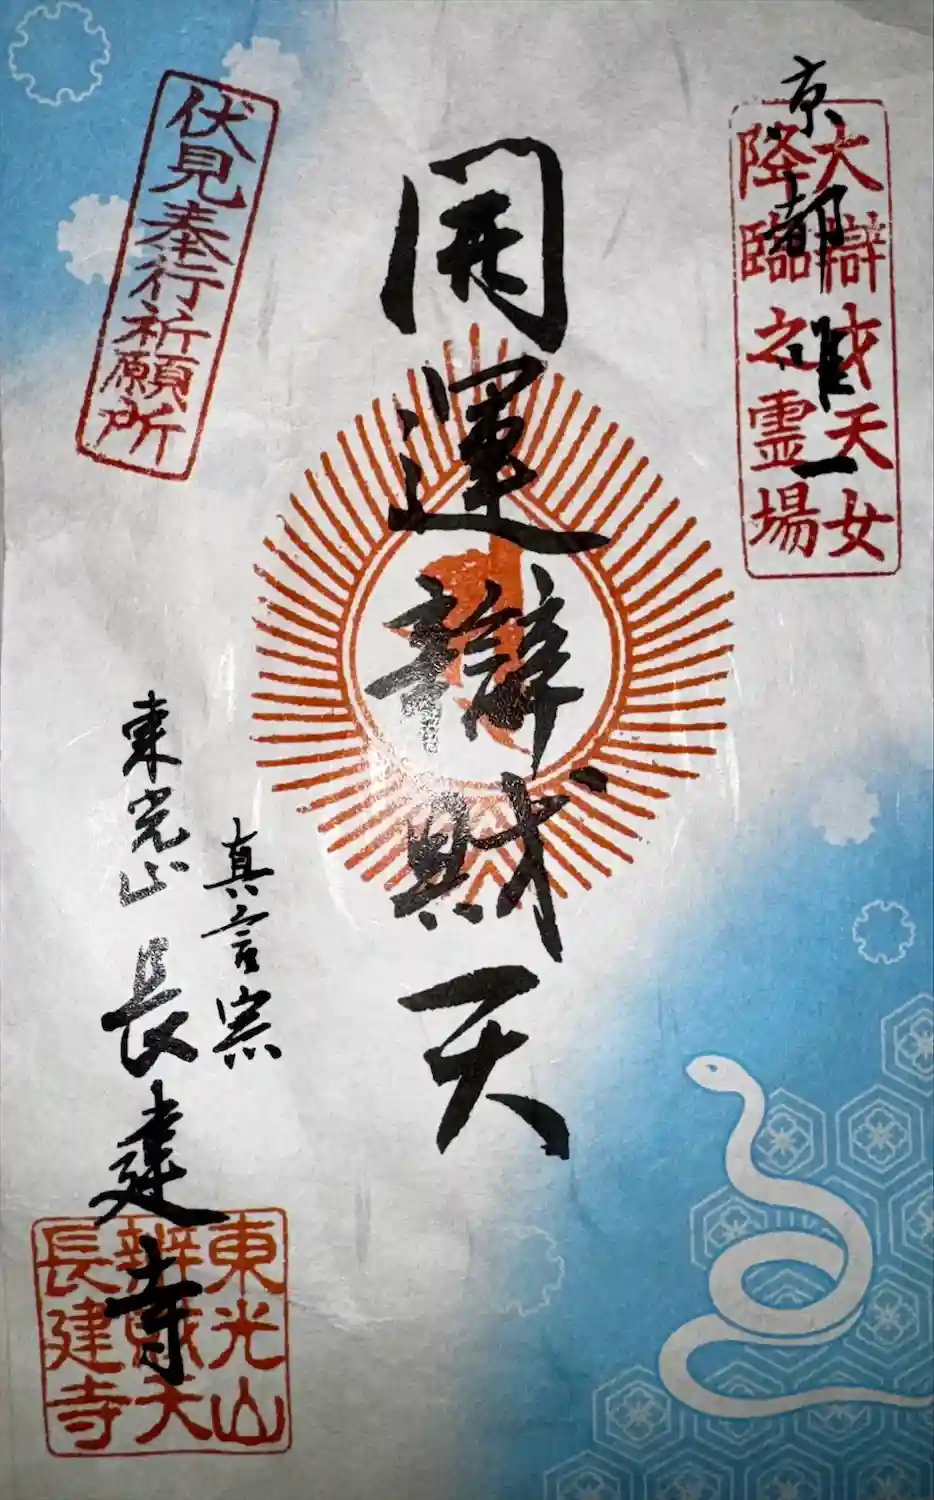 京都唯一
大辯才天女
降臨之霊場
開運辯財天
伏見奉行祈願所
真言宗
東光山長建寺
東光山
辨財天
長建寺